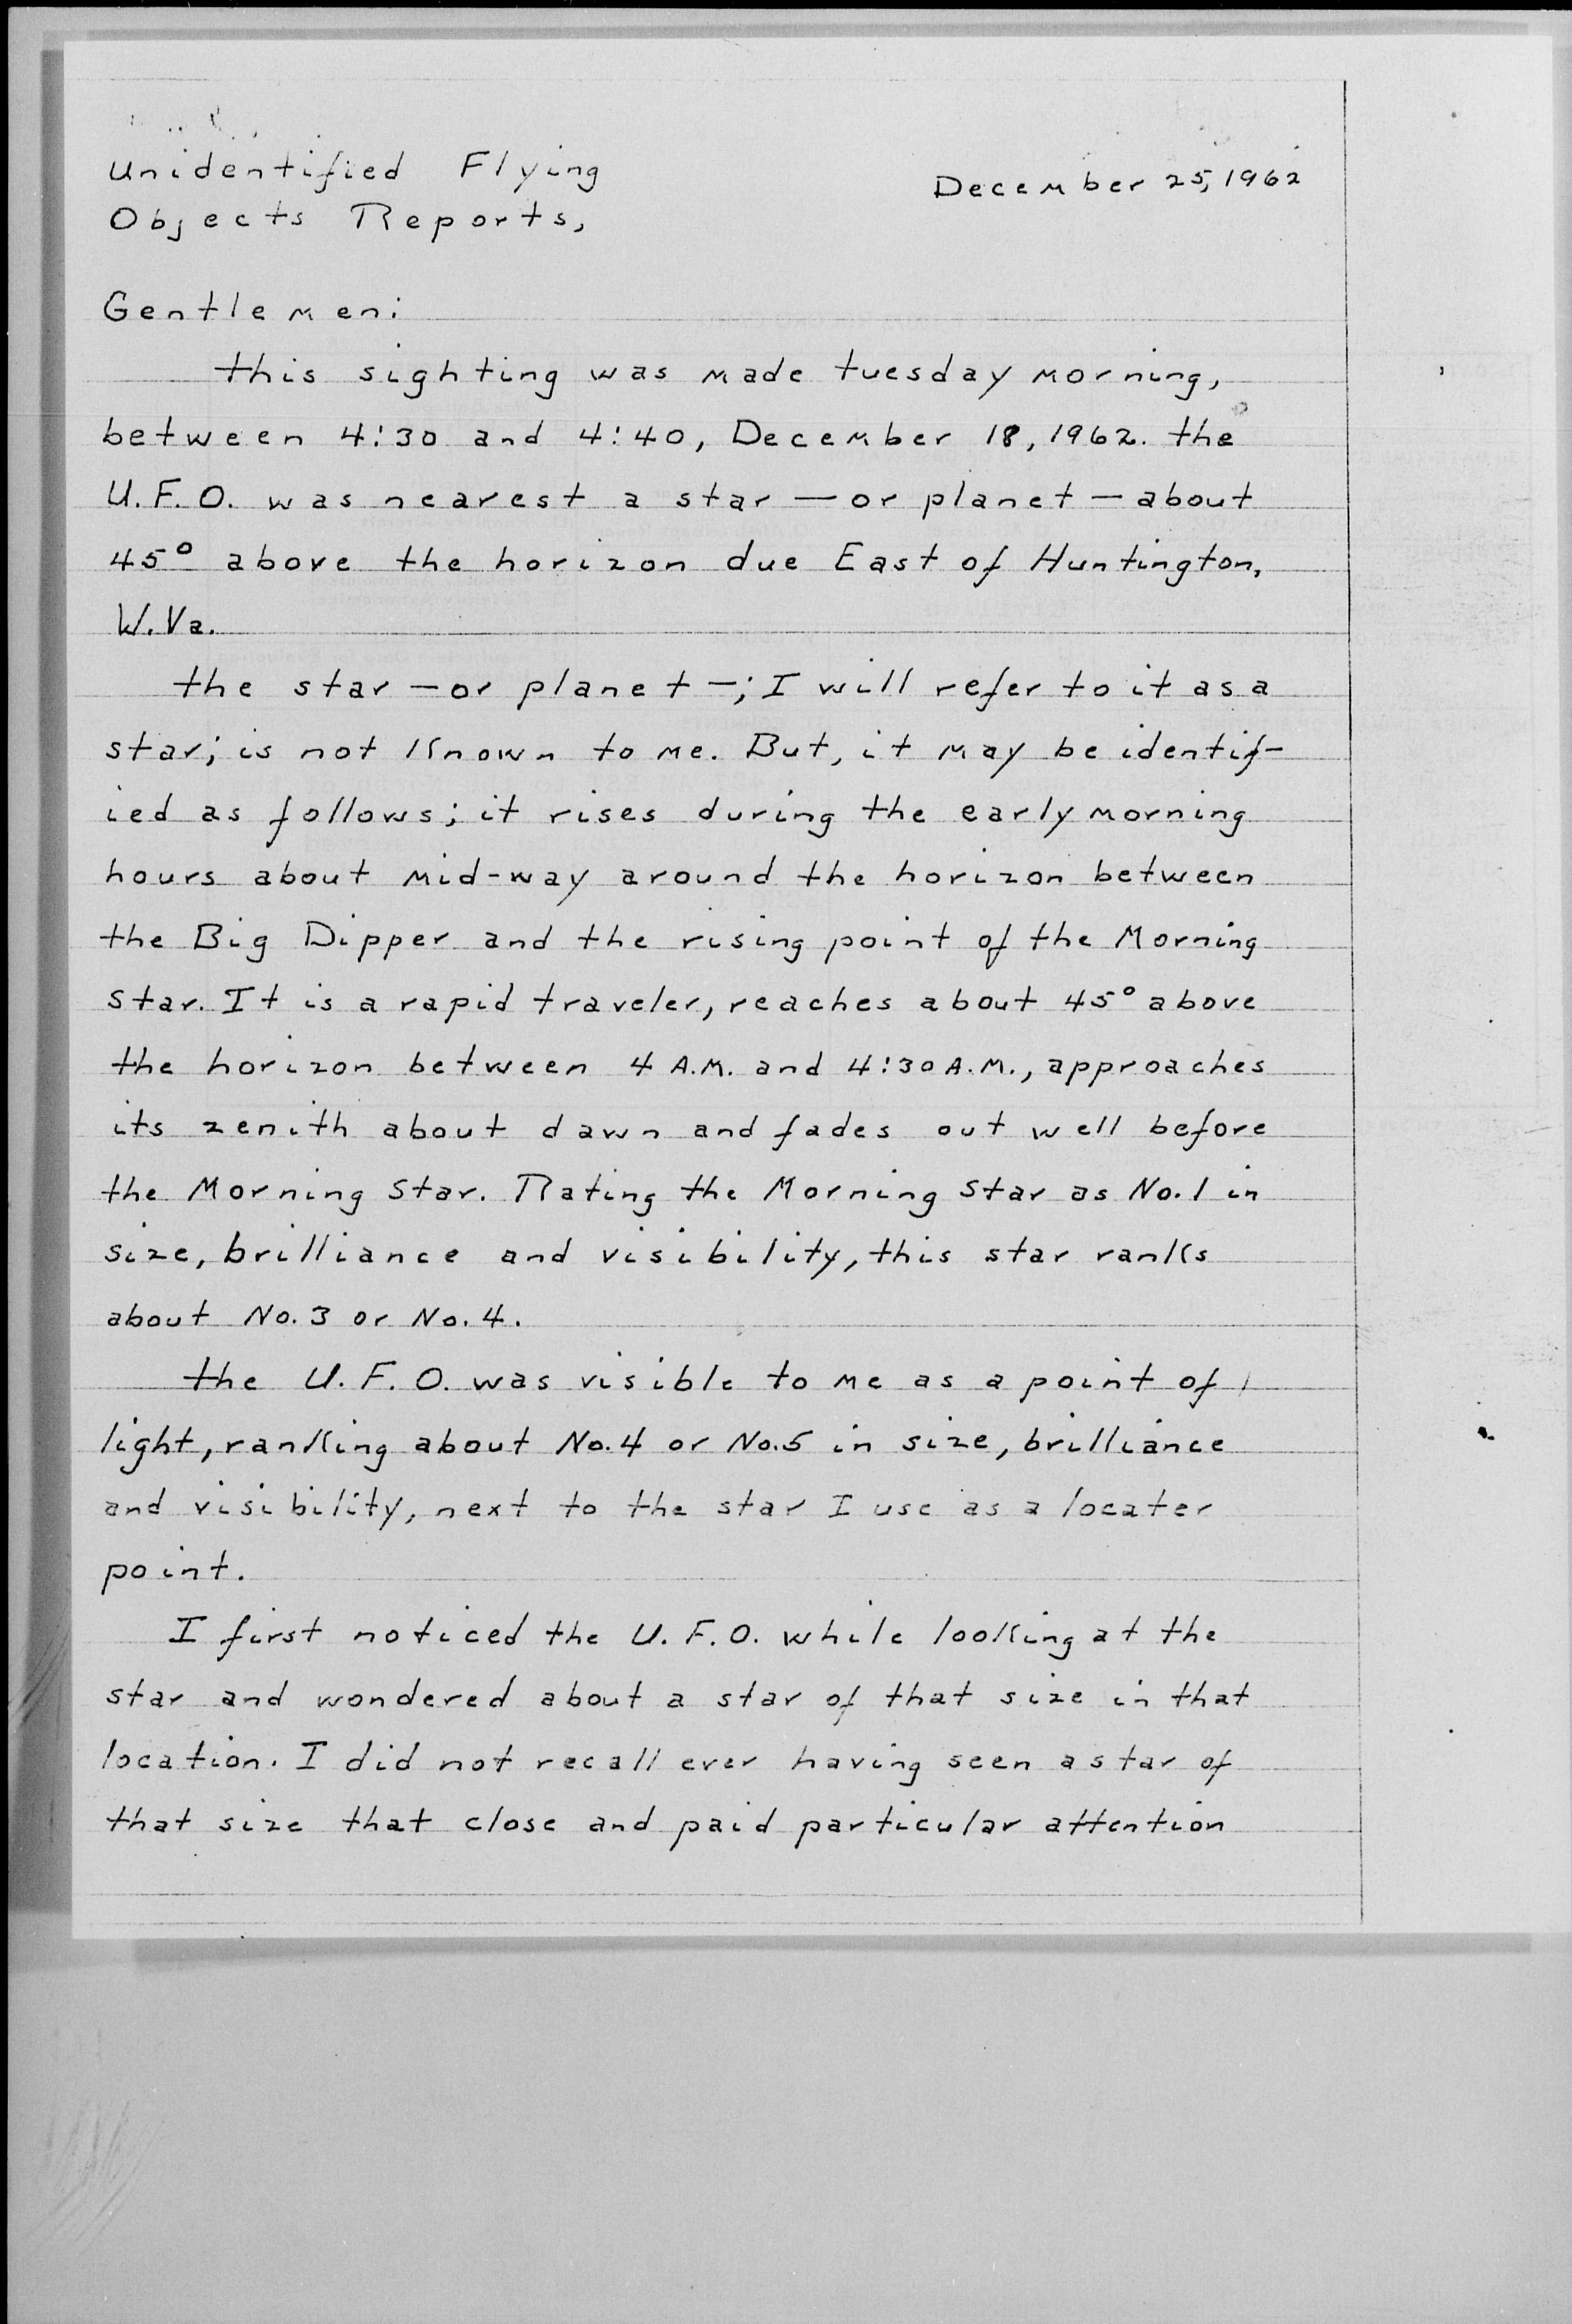 Unidentified Flying
Objects Reports,
December 25, 1962
Gentlemen:
this sighting was made tuesday morning,
between 4:30 and 4:40, December 18, 1962. the
U.F.O. was nearest a star — or planet — about
45° above the horizon due East of Huntington,
W.Va.
the star — or planet —; I will refer to it as a
star; is not known to me. But, it may be identif-
ied as follows; it rises during the early morning
hours about mid-way around the horizon between
the Big Dipper and the rising point of the Morning
Star. It is a rapid traveler, reaches about 45° above
the horizon between 4 A.M. and 4:30 A.M., approaches
its zenith about dawn and fades out well before
the Morning Star. Rating the Morning Star as No. 1 in
size, brilliance and visibility, this star ranks
about No. 3 or No. 4.
the U.F.O. was visible to me as a point of
light, ranking about No. 4 or No. 5 in size, brilliance
and visibility, next to the star I use as a locater
point.
I first noticed the U.F.O. while looking at the
star and wondered about a star of that size in that
location. I did not recall ever having seen a star of
that size that close and paid particular attention